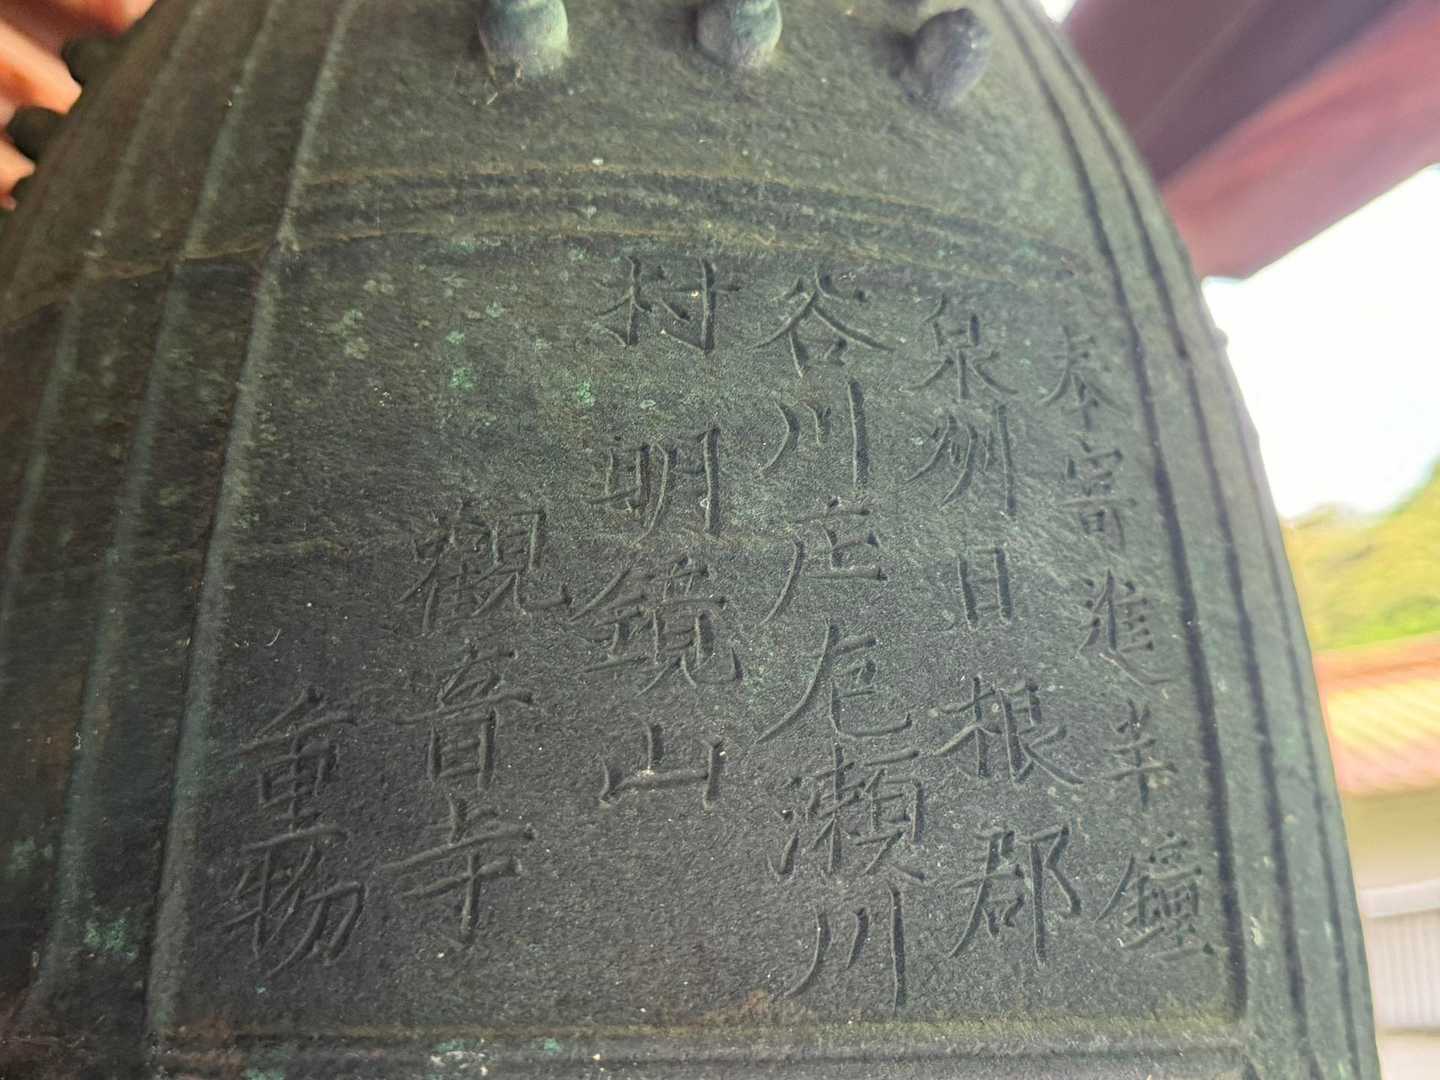 奉寄進半鐘
泉州日根郡
谷川庄瀬川
村 明鏡山
觀音寺
重物